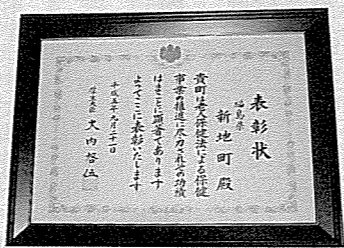 表彰状
福島県
新地町殿
貴町は老人保健法による保健
事業の推進に尽力されその功績
はまことに顕著であります
よってここに表彰いたします
平成五年九月二十一日
厚生大臣 大内啓伍